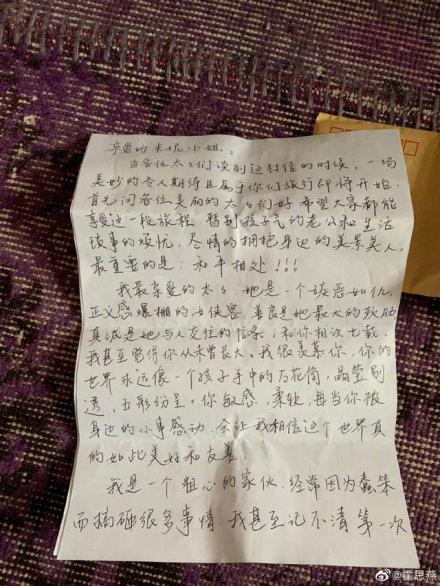 亲爱的米妮小姐:
当各位太太们读到这封信的时候,一场
美妙的令人期待且属于你们旅行即将开始.
首先问各位美丽的太太们好 希望大家都能
享受这一段旅程 暂别孩子气的老公和生活
琐事的烦忧,尽情的拥抱身边的美景美人,
最重要的是:和平相处!!!
我最亲爱的太太.她是一个嫉恶如仇,
正义感爆棚的女侠客.善良是她最大的软肋
真诚是她与人交往的信条,和你相识七载,
我甚至觉得你从未曾长大,我很羡慕你,你的
世界永远像一个孩子手中的万花筒,晶莹剔
透,五彩纷呈。你敏感,柔软,每当你被
身边的小事感动,会让我相信这个世界真
的如此美好和友善!
我是一个粗心的家伙,经常因为蠢笨
而搞砸很多事情.我甚至记不清第一次
@霍思燕